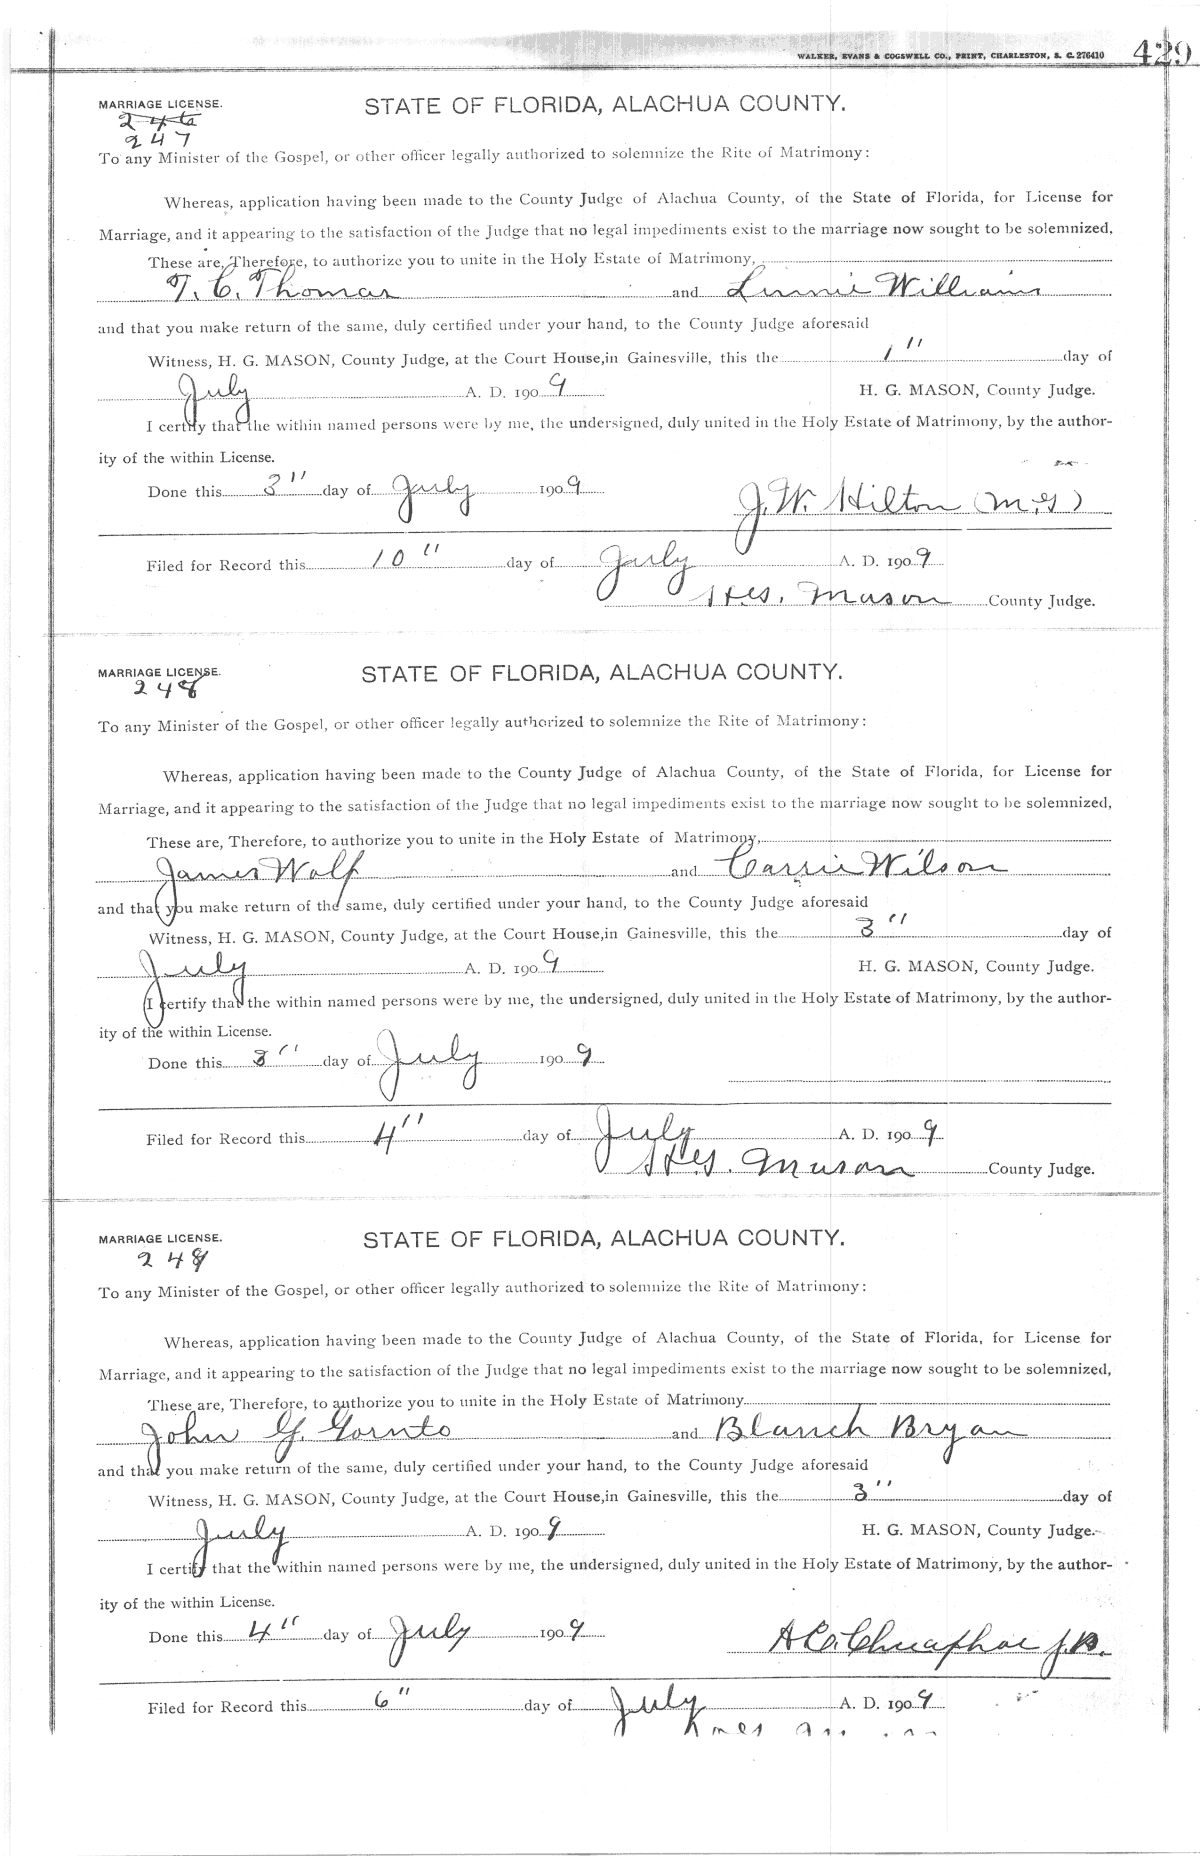 WALKER, EVANS & COGSWELL CO., PRINT, CHARLESTON, S. C. 276410 429
MARRIAGE LICENSE. STATE OF FLORIDA, ALACHUA COUNTY.
246
247
To any Minister of the Gospel, or other officer legally authorized to solemnize the Rite of Matrimony:
Whereas, application having been made to the County Judge of Alachua County, of the State of Florida, for License for
Marriage, and it appearing to the satisfaction of the Judge that no legal impediments exist to the marriage now sought to be solemnized,
These are, Therefore, to authorize you to unite in the Holy Estate of Matrimony,
T. C. Thomas and Linnie Williams
and that you make return of the same, duly certified under your hand, to the County Judge aforesaid
Witness, H. G. MASON, County Judge, at the Court House, in Gainesville, this the 1" day of
July A. D. 1909 H. G. MASON, County Judge.
I certify that the within named persons were by me, the undersigned, duly united in the Holy Estate of Matrimony, by the author-
ity of the within License.
Done this 3" day of July 1909 J. W. Hilton (M.G)
Filed for Record this 10" day of July A. D. 1909
Mason County Judge.
MARRIAGE LICENSE. STATE OF FLORIDA, ALACHUA COUNTY.
248
To any Minister of the Gospel, or other officer legally authorized to solemnize the Rite of Matrimony:
Whereas, application having been made to the County Judge of Alachua County, of the State of Florida, for License for
Marriage, and it appearing to the satisfaction of the Judge that no legal impediments exist to the marriage now sought to be solemnized,
These are, Therefore, to authorize you to unite in the Holy Estate of Matrimony,
James Wolf and Carrie Wilson
and that you make return of the same, duly certified under your hand, to the County Judge aforesaid
Witness, H. G. MASON, County Judge, at the Court House, in Gainesville, this the 3" day of
July A. D. 1909 H. G. MASON, County Judge.
I certify that the within named persons were by me, the undersigned, duly united in the Holy Estate of Matrimony, by the author-
ity of the within License.
Done this 3" day of July 1909
Filed for Record this 4" day of July A. D. 1909
Mason County Judge.
MARRIAGE LICENSE. STATE OF FLORIDA, ALACHUA COUNTY.
249
To any Minister of the Gospel, or other officer legally authorized to solemnize the Rite of Matrimony:
Whereas, application having been made to the County Judge of Alachua County, of the State of Florida, for License for
Marriage, and it appearing to the satisfaction of the Judge that no legal impediments exist to the marriage now sought to be solemnized,
These are, Therefore, to authorize you to unite in the Holy Estate of Matrimony
John G. Gornto and Blanch Bryan
and that you make return of the same, duly certified under your hand, to the County Judge aforesaid
Witness, H. G. MASON, County Judge, at the Court House, in Gainesville, this the 3" day of
July A. D. 1909 H. G. MASON, County Judge.
I certify that the within named persons were by me, the undersigned, duly united in the Holy Estate of Matrimony, by the author-
ity of the within License.
Done this 4" day of July 1909 J.P.
Filed for Record this 6" day of July A. D. 1909